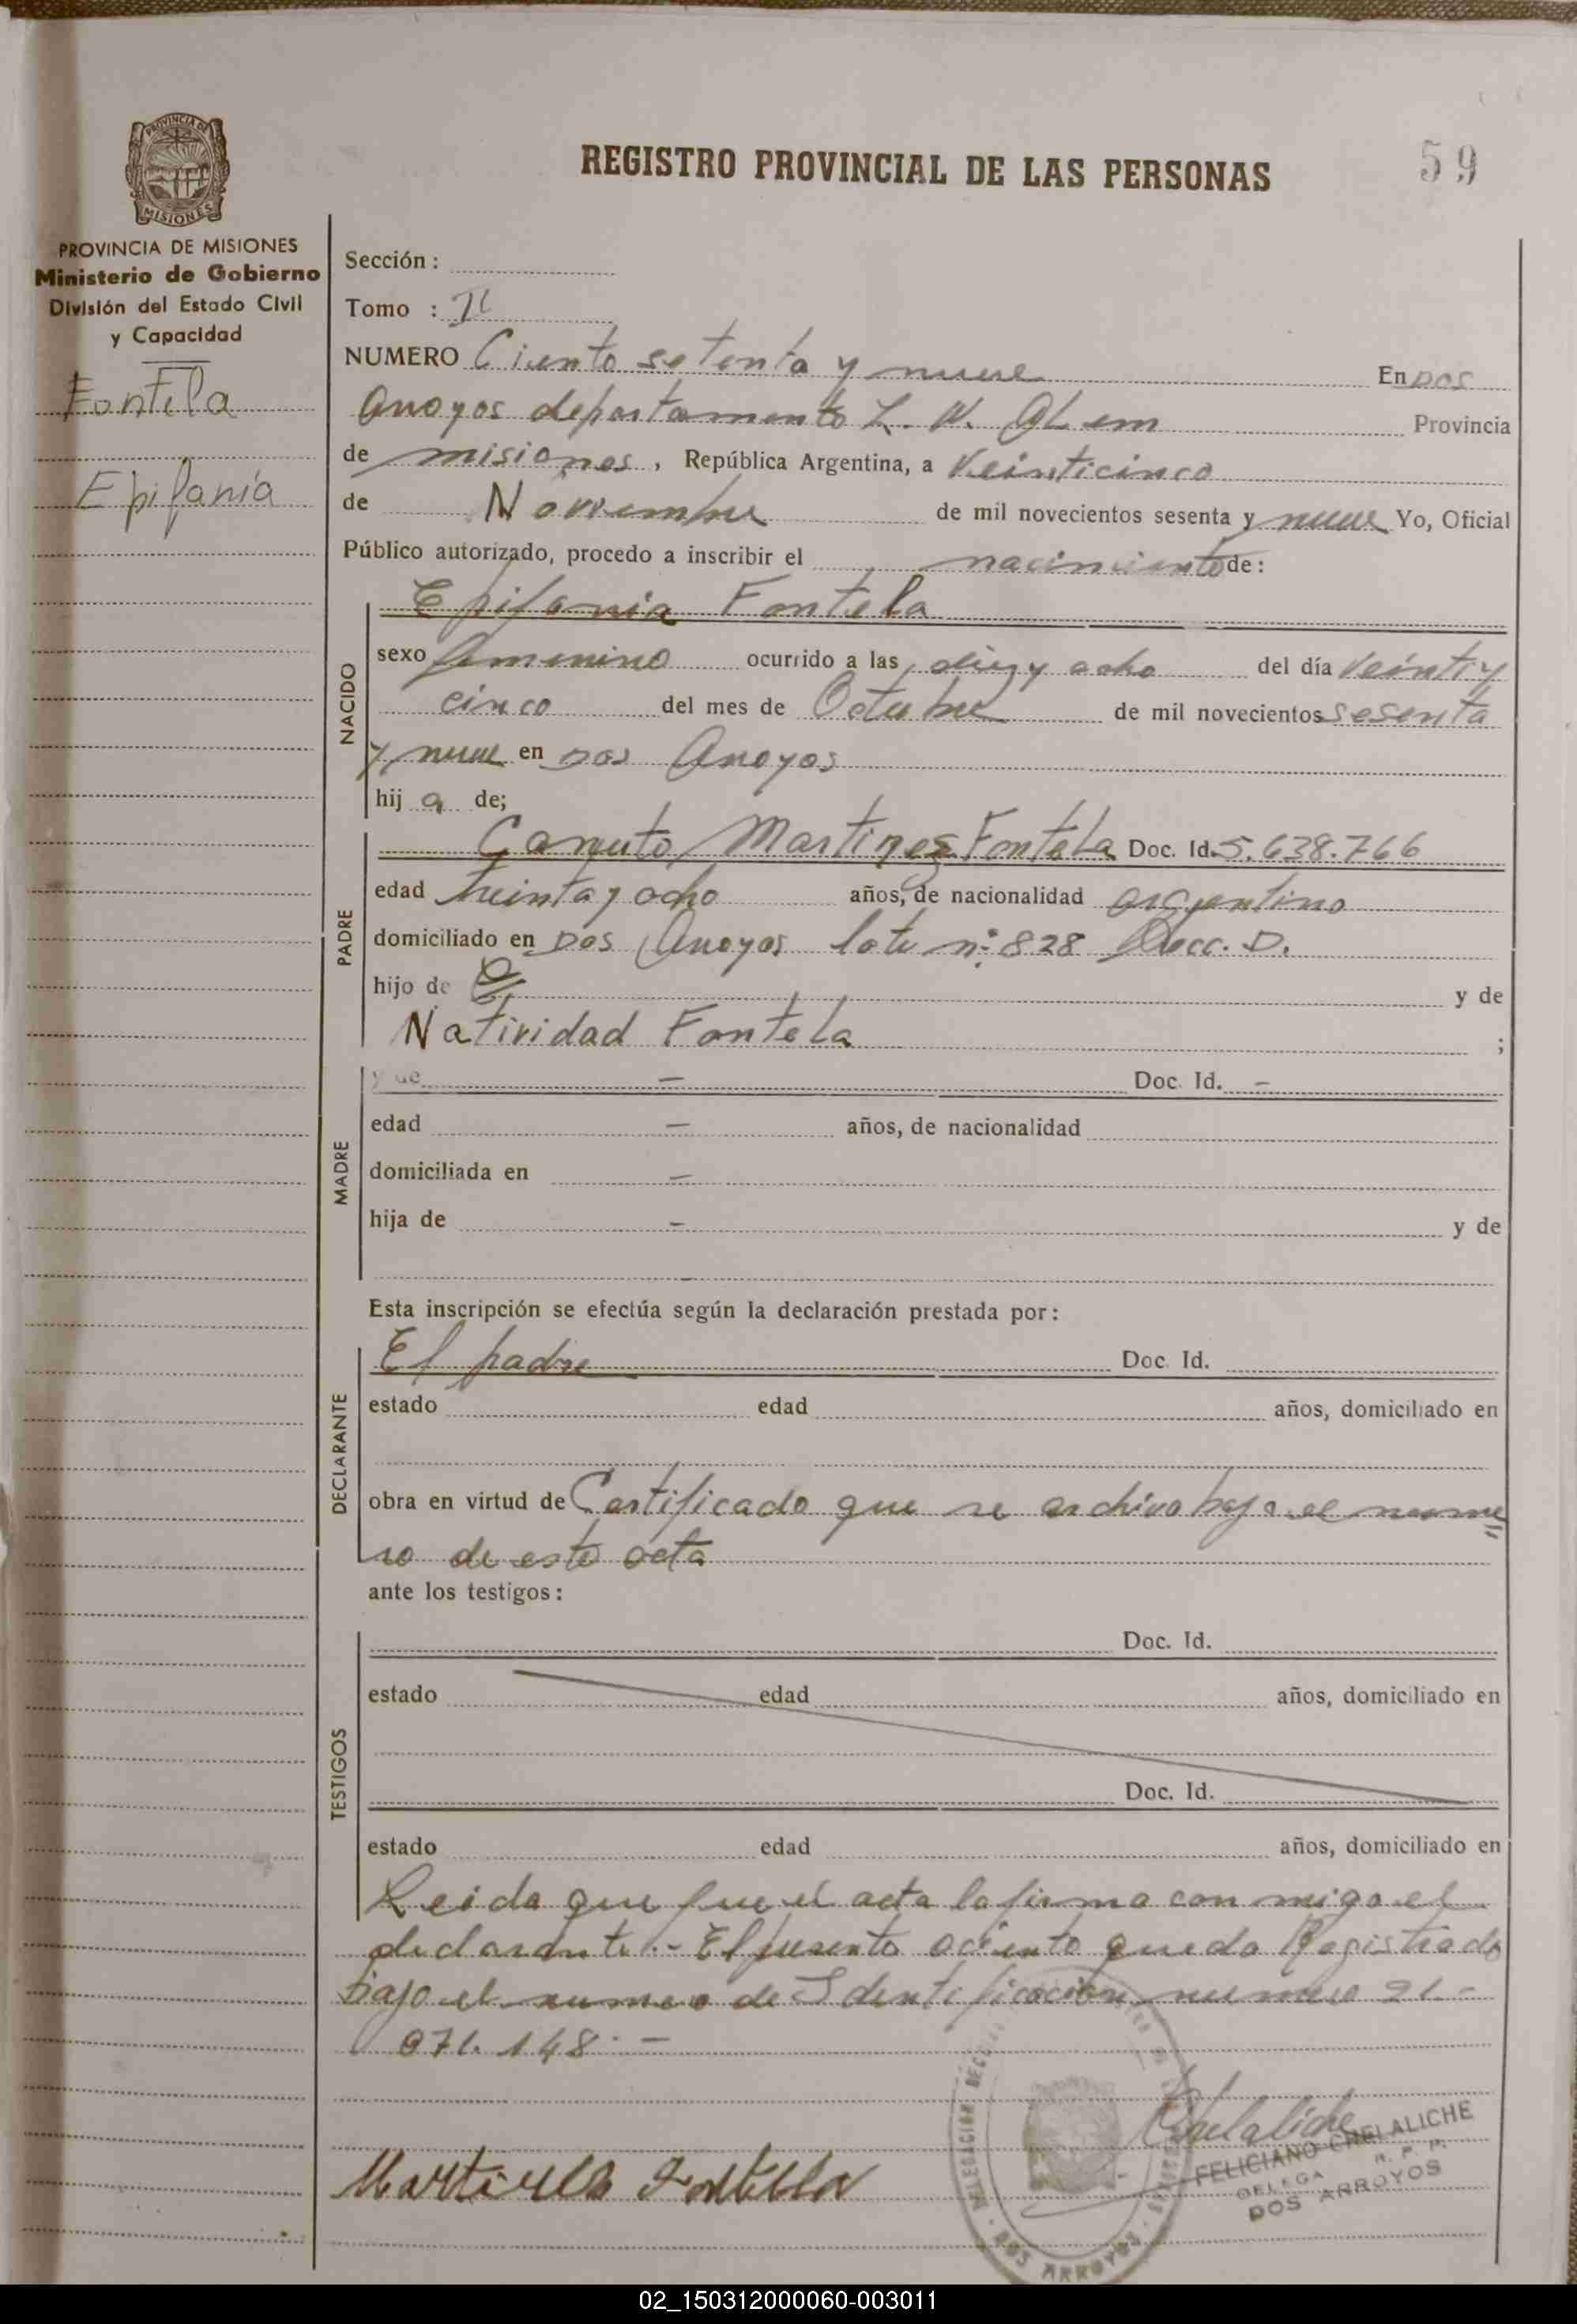 REGISTRO PROVINCIAL DE LAS PERSONAS
59
PROVINCIA DE
MISIONES
PROVINCIA DE MISIONES
Ministerio de Gobierno
División del Estado Civil
y Capacidad
Fontela
Epifanía
Sección :
Tomo : II
NUMERO Ciento setenta y nueve En Dos
Arroyos departamento L. N. ALem Provincia
de misiones, República Argentina, a Veinticinco
de Noviembre de mil novecientos sesenta y nueve Yo, Oficial
Público autorizado, procedo a inscribir el nacimiento de:
Epifania Fontela
NACIDO
sexo femenino ocurrido a las diez y ocho del día Veinti y
cinco del mes de Octubre de mil novecientos sesenta
y nueve en Dos Arroyos
hij a de;
PADRE
Canuto Martinez Fontela Doc. Id. 5.638.766
edad treinta y ocho años, de nacionalidad argentino
domiciliado en Dos Arroyos lote nº 828 Secc. D.
hijo de y de
Natividad Fontela ;
MADRE
y de — Doc. Id. —
edad — años, de nacionalidad
domiciliada en —
hija de — y de
Esta inscripción se efectúa según la declaración prestada por:
DECLARANTE
El padre Doc. Id.
estado edad años, domiciliado en
obra en virtud de Certificado que se archiva bajo el nume
ro de esta acta
ante los testigos:
TESTIGOS
Doc. Id.
estado edad años, domiciliado en
Doc. Id.
estado edad años, domiciliado en
Leida que fue el acta la firma con migo el
declarante.- El presente aciento queda Registrado
bajo el numero de Identificacion numero 21.-
071.148.—
Chelaliche
FELICIANO CHELALICHE
DELEGA R. P. P.
DOS ARROYOS
DELEGACION SECCIONAL
DOS ARROYOS
02_150312000060-003011